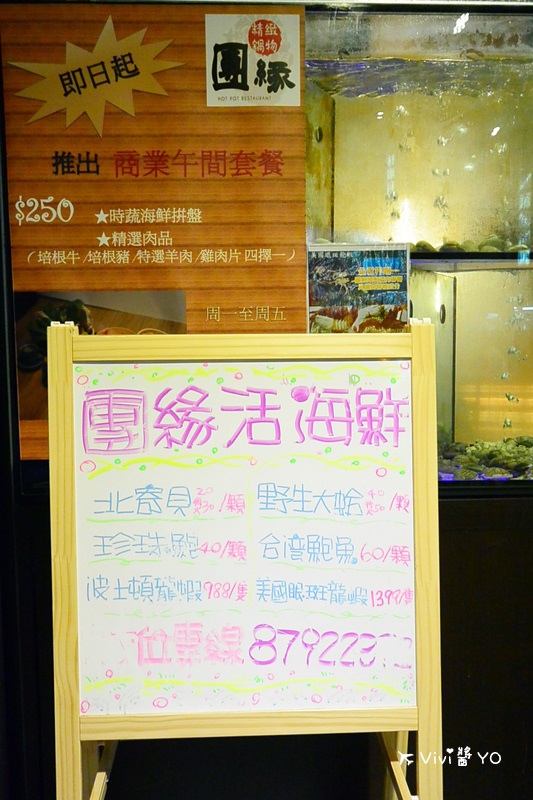 即日起
精緻鍋物
團緣
HOT POT RESTAURANT
推出 商業午間套餐
$250 ★時蔬海鮮拼盤
★精選肉品
(培根牛/培根豬/特選羊肉/雞肉片 四擇一)
周一至周五
團緣活海鮮
北寄貝 20/顆
野生大蛤 40/顆
珍珠鮑 40/顆
台灣鮑魚 60/顆
波士頓龍蝦 988/隻
美國眼斑龍蝦 1399/隻
位專線 879223
Vivi醬YO